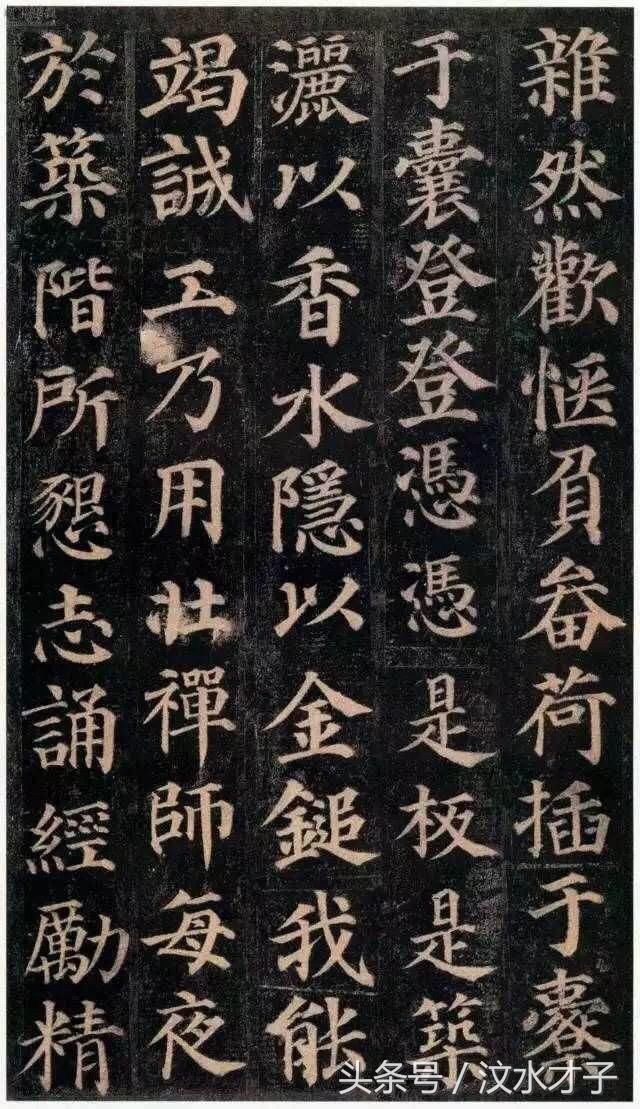 雜然歡愜負畚荷插于橐
于囊登登憑憑是板是築
灑以香水隱以金鎚我能
竭誠工乃用壯禪師每夜
於築階所懇志誦經勵精
头条号／汶水才子